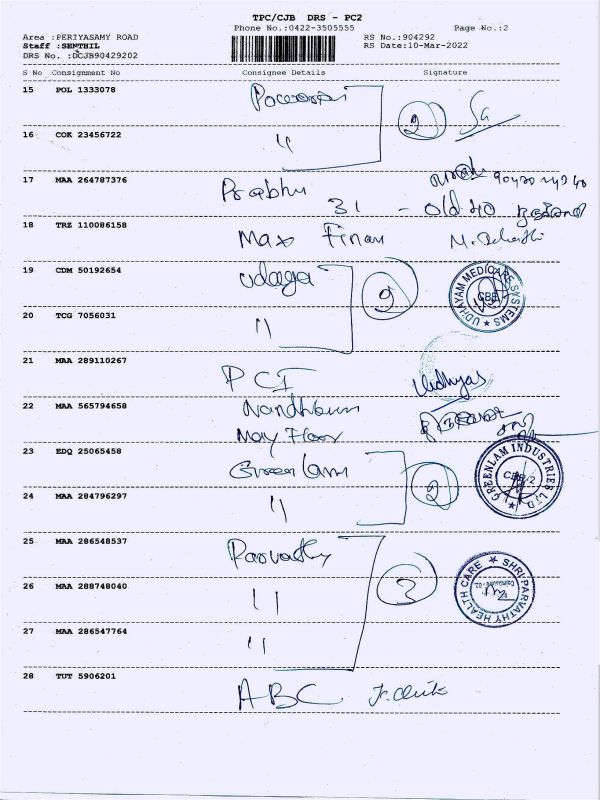 TPC/CJB DRS - PC2
Phone No.:0422-3505555
Page No.:2
Area :PERIYASAMY ROAD
RS No.:904292
Staff :SENTHIL
RS Date:10-Mar-2022
DRS No. :DCJB90429202
S No Consignment No Consignee Details Signature
15 POL 1333078
2
16 COK 23456722
"
17 MAA 264787376
Prabhu
31 - old 40
18 TRZ 110086158
Max Finan
19 CDM 50192654
Udaga
2
UDHAYAM MEDICARE SYSTEMS
CBE
20 TCG 7056031
"
21 MAA 289110267
PCI
Vidhyas
22 MAA 565794658
May Floor
23 EDQ 25065458
Greenlam
2
GREENLAM INDUSTRIES LTD.
CBE-2
24 MAA 284796297
"
25 MAA 286548537
Parvathy
3
SHRI PARVATHY HEALTH CARE
26 MAA 288748040
"
27 MAA 286547764
"
28 TUT 5906201
ABC